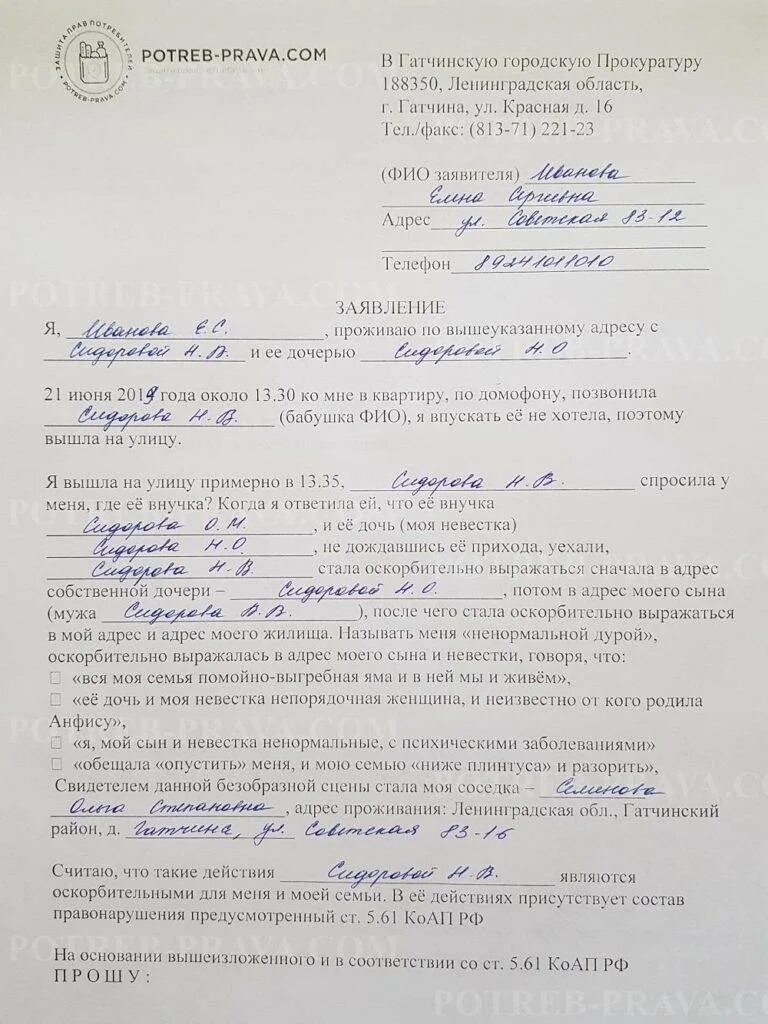 ЗАЩИТА ПРАВ ПОТРЕБИТЕЛЕЙ
POTREB-PRAVA.COM
POTREB-PRAVA.COM
В Гатчинскую городскую Прокуратуру
188350, Ленинградская область,
г. Гатчина, ул. Красная д. 16
Тел./факс: (813-71) 221-23
(ФИО заявителя) Иванова
Елена Сергеевна
Адрес ул. Советская 83-12
Телефон 89241011010
ЗАЯВЛЕНИЕ
Я, Иванова Е.С. , проживаю по вышеуказанному адресу с
Сидоровой Н.В. и ее дочерью Сидоровой Н.О .
21 июня 2019 года около 13.30 ко мне в квартиру, по домофону, позвонила
Сидорова Н.В. (бабушка ФИО), я впускать её не хотела, поэтому
вышла на улицу.
Я вышла на улицу примерно в 13.35, Сидорова Н.В. спросила у
меня, где её внучка? Когда я ответила ей, что её внучка
Сидорова О.М. , и её дочь (моя невестка)
Сидорова Н.О , не дождавшись её прихода, уехали,
Сидорова Н.В стала оскорбительно выражаться сначала в адрес
собственной дочери – Сидоровой Н.О. , потом в адрес моего сына
(мужа Сидорова В.В. ), после чего стала оскорбительно выражаться
в мой адрес и адрес моего жилища. Называть меня «ненормальной дурой»,
оскорбительно выражалась в адрес моего сына и невестки, говоря, что:
«вся моя семья помойно-выгребная яма и в ней мы и живём»,
«её дочь и моя невестка непорядочная женщина, и неизвестно от кого родила
Анфису»,
«я, мой сын и невестка ненормальные, с психическими заболеваниями»
«обещала «опустить» меня, и мою семью «ниже плинтуса» и разорить»,
Свидетелем данной безобразной сцены стала моя соседка – Семенова
Ольга Степановна , адрес проживания: Ленинградская обл., Гатчинский
район, д. Гатчина, ул. Советская 83-16
Считаю, что такие действия Сидоровой Н.В. являются
оскорбительными для меня и моей семьи. В её действиях присутствует состав
правонарушения предусмотренный ст. 5.61 КоАП РФ
На основании вышеизложенного и в соответствии со ст. 5.61 КоАП РФ
П Р О Ш У :